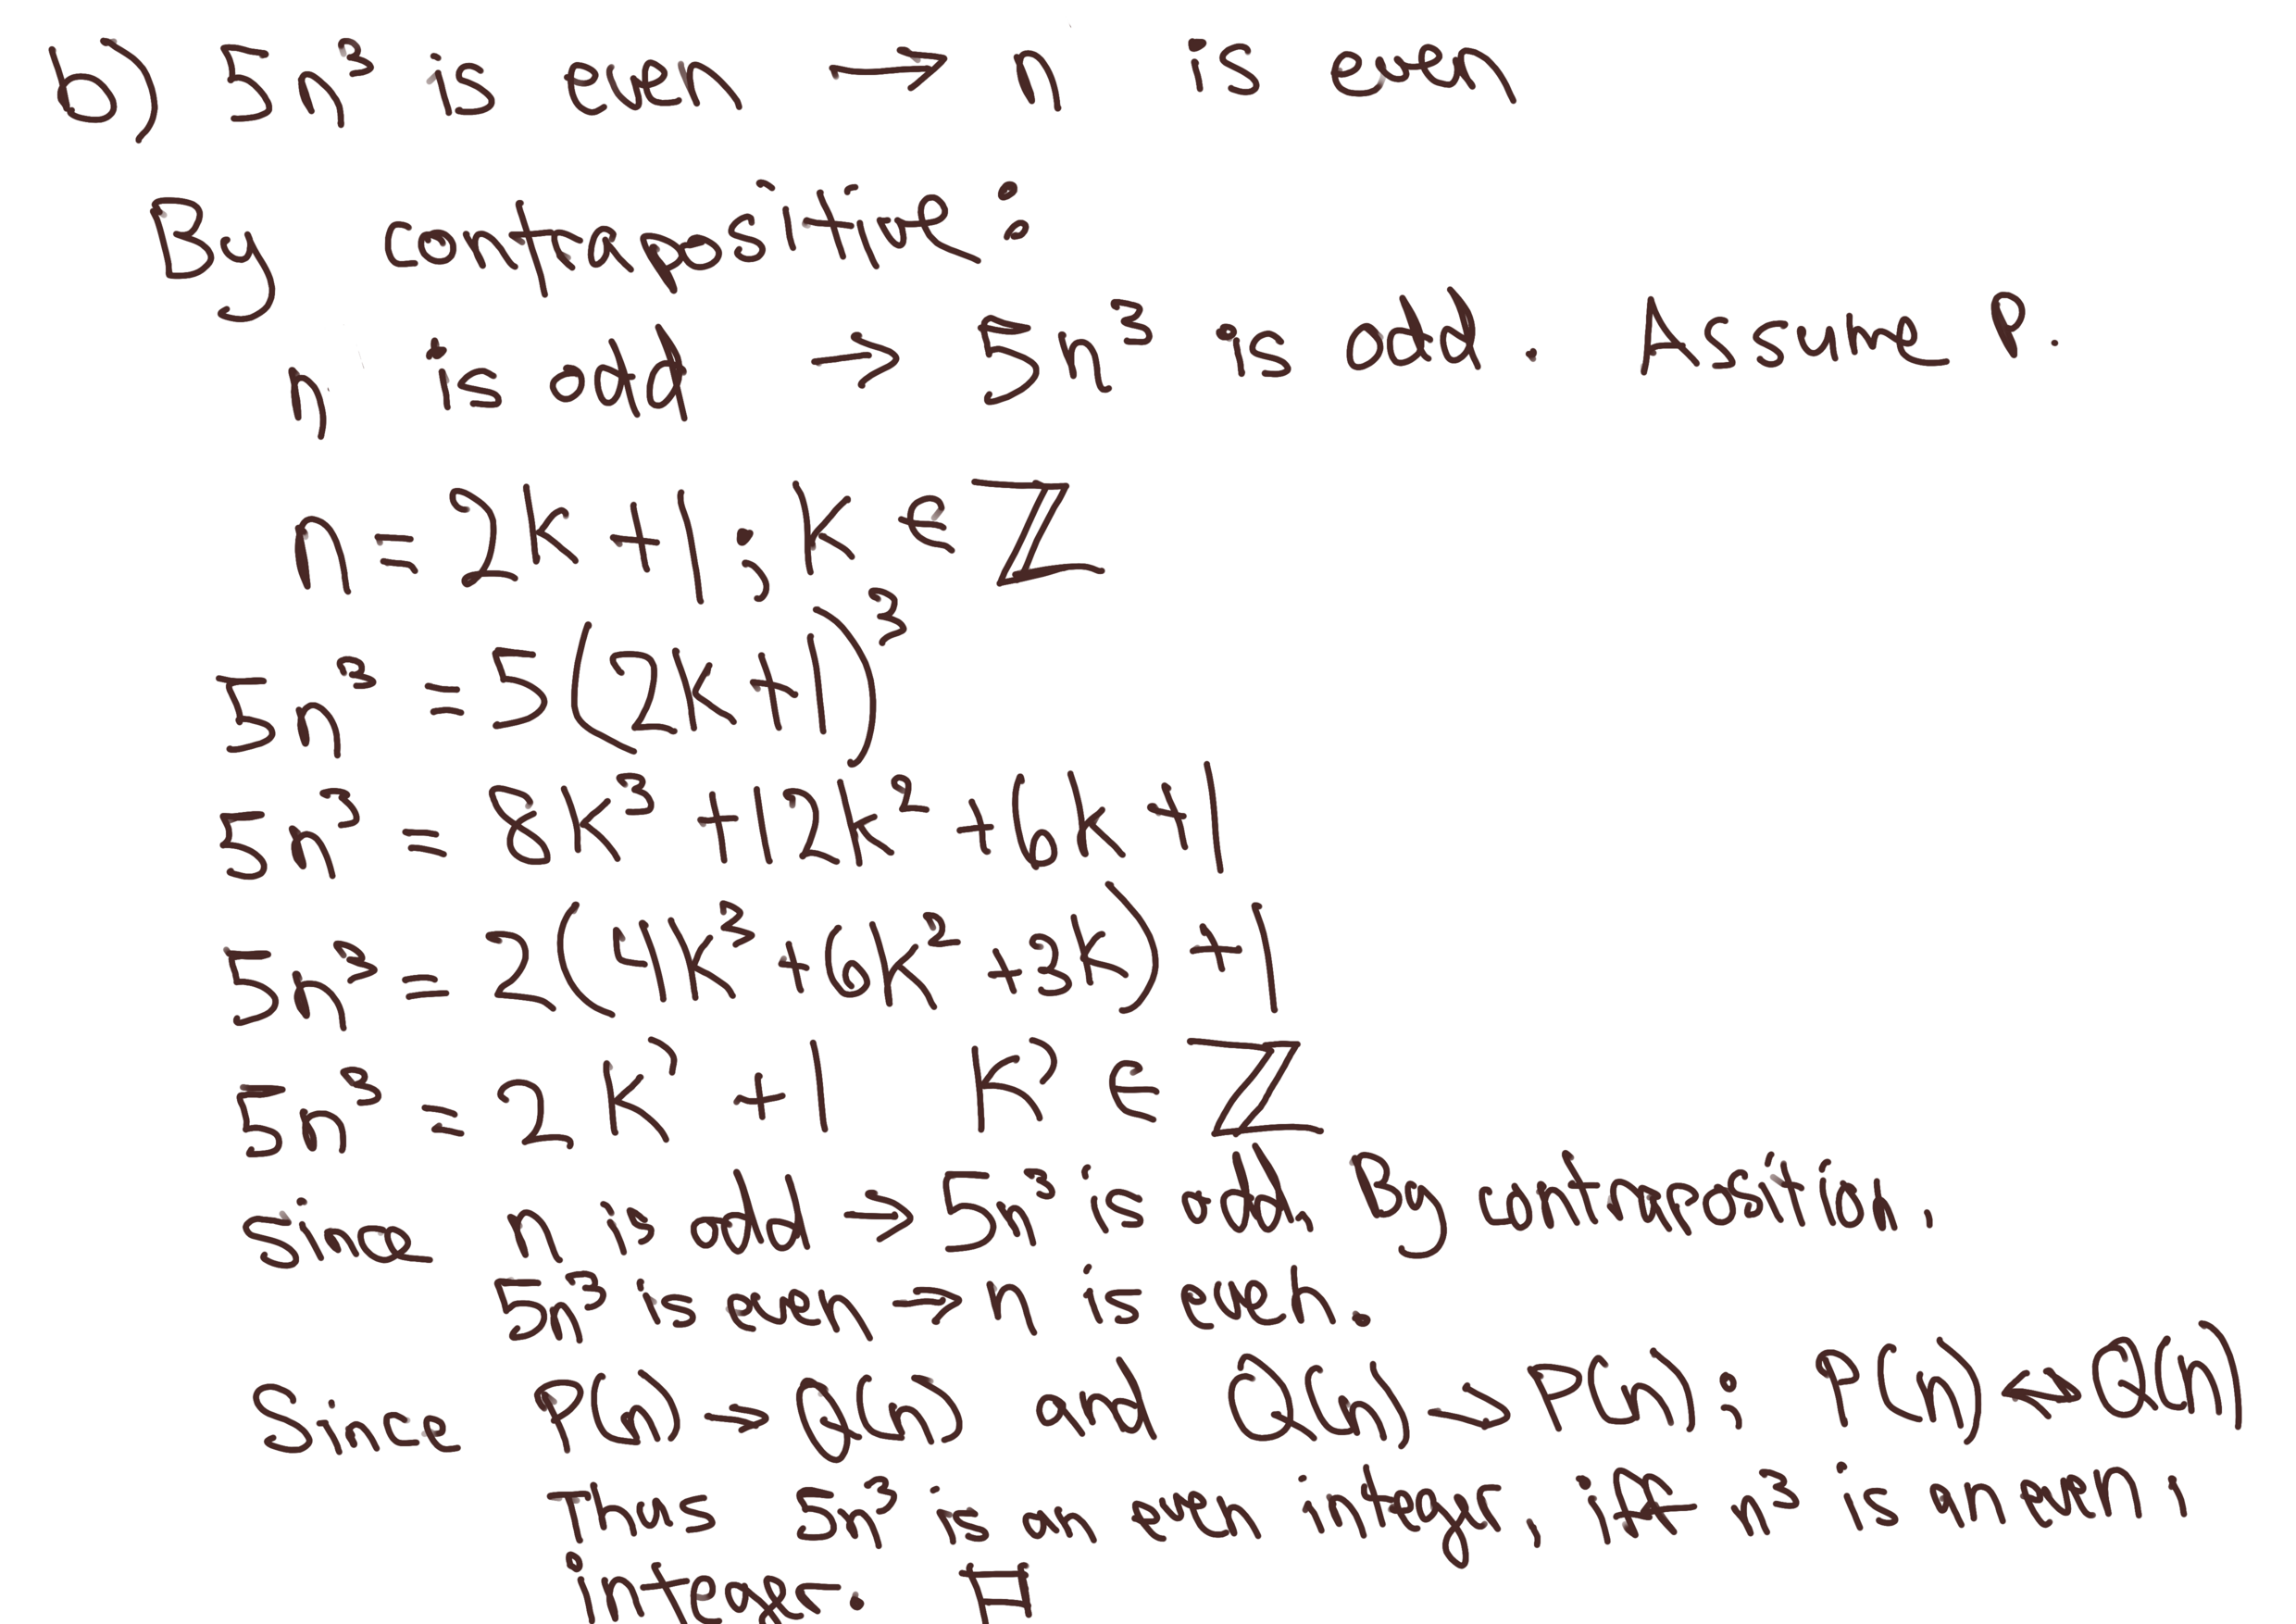 b) 5n³ is even → n is even
By contrapositive:
n is odd → 5n³ is odd. Assume P.
n = 2k+1; k ∈ ℤ
5n³ = 5(2k+1)³
5n³ = 8k³ +12k² +6k +1
5n³ = 2(4k³ +6k² +3k) +1
5n³ = 2k' +1 k' ∈ ℤ
Since n is odd → 5n³ is odd. By contraposition,
5n³ is even → n is even.
Since P(n) → Q(n) and Q(n) → P(n): P(n) ↔ Q(n)
Thus 5n³ is an even integer, iff n³ is an even,
integer. □